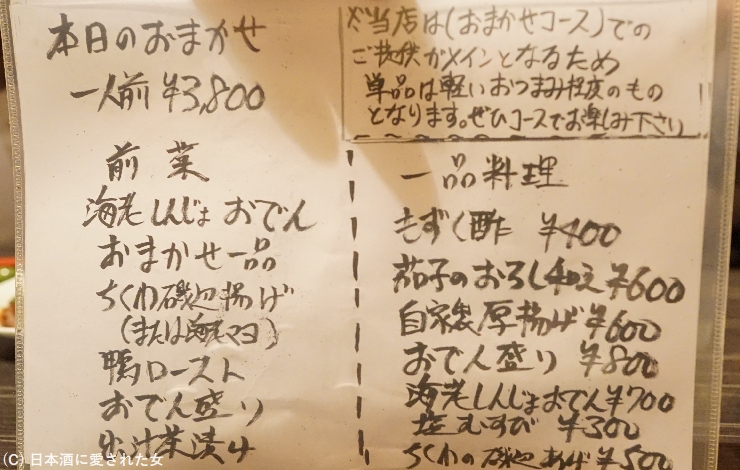 本日のおまかせ
一人前 ¥3,800
前菜
海老しんじょ おでん
おまかせ一品
ちくわ磯辺揚げ
(または海老マヨ)
鴨ロースト
おでん盛り
出汁茶漬け
※当店は(おまかせコース)での
ご提供がメインとなるため
単品は軽いおつまみ程度のもの
となります。ぜひコースでお楽しみ下さい
一品料理
もずく酢 ¥400
茄子のおろし和え ¥600
自家製厚揚げ ¥600
おでん盛り ¥800
海老しんじょおでん ¥700
塩むすび ¥300
ちくわの磯辺あげ ¥500
(C) 日本酒に愛された女